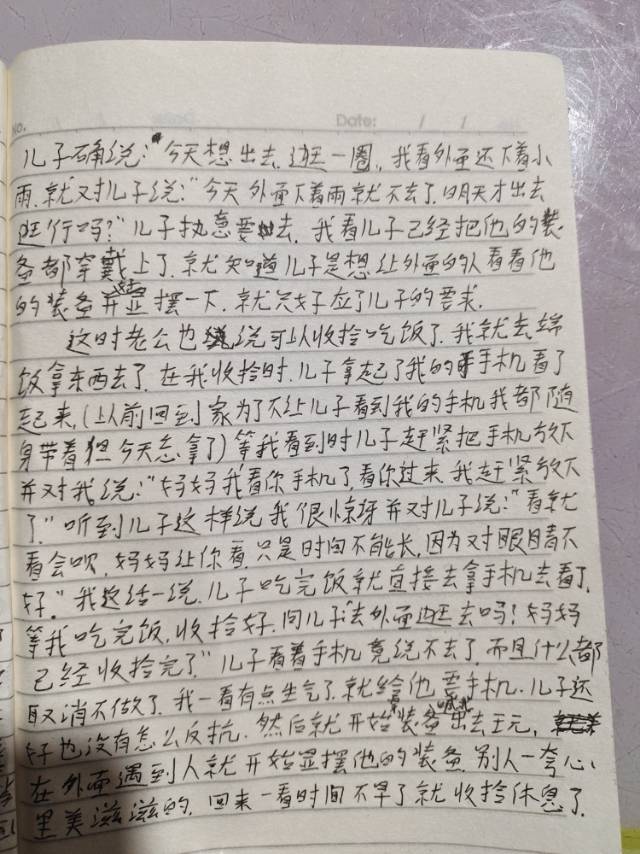 No.
Date:
儿子确说:"今天想出去逛一圈,我看外面还下着小
雨,就又对儿子说:"今天外面下着雨就不去了,明天才出去
逛行吗?"儿子执意要去,我看儿子已经把他的装
备都穿戴上了,就知道儿子是想让外面的人看看他
的装备并显摆一下,就只好应了儿子的要求.
这时老公也说可以收拾吃饭了,我就去端
饭拿东西去了,在我收拾时,儿子拿起了我的手机看了
起来,(以前回到家为了不让儿子看到我的手机我都随
身带着但今天忘拿了)等我看到时儿子赶紧把手机放下
并对我说:"妈妈我看你手机了看你过来我赶紧放下
了."听到儿子这样说我很惊讶并对儿子说:"看就
看会呗,妈妈让你看,只是时间不能长,因为对眼睛不
好."我这话一说,儿子吃完饭就直接去拿手机去看了,
等我吃完饭,收拾好,问儿子法外面逛去吗?妈妈
已经收拾完了"儿子看着手机竟说不去了,而且什么都
取消不做了,我一看有点生气了,就给他要手机.儿子还
好也没有怎么反抗,然后就开始装备出去玩,
在外面遇到人就开始显摆他的装备,别人一夸心
里美滋滋的,回来一看时间不早了就收拾休息了.